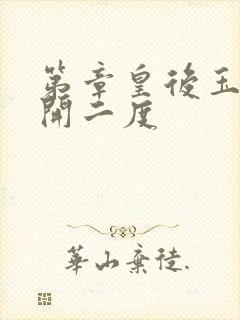 第章皇後玉
開二度
華山棄徒.